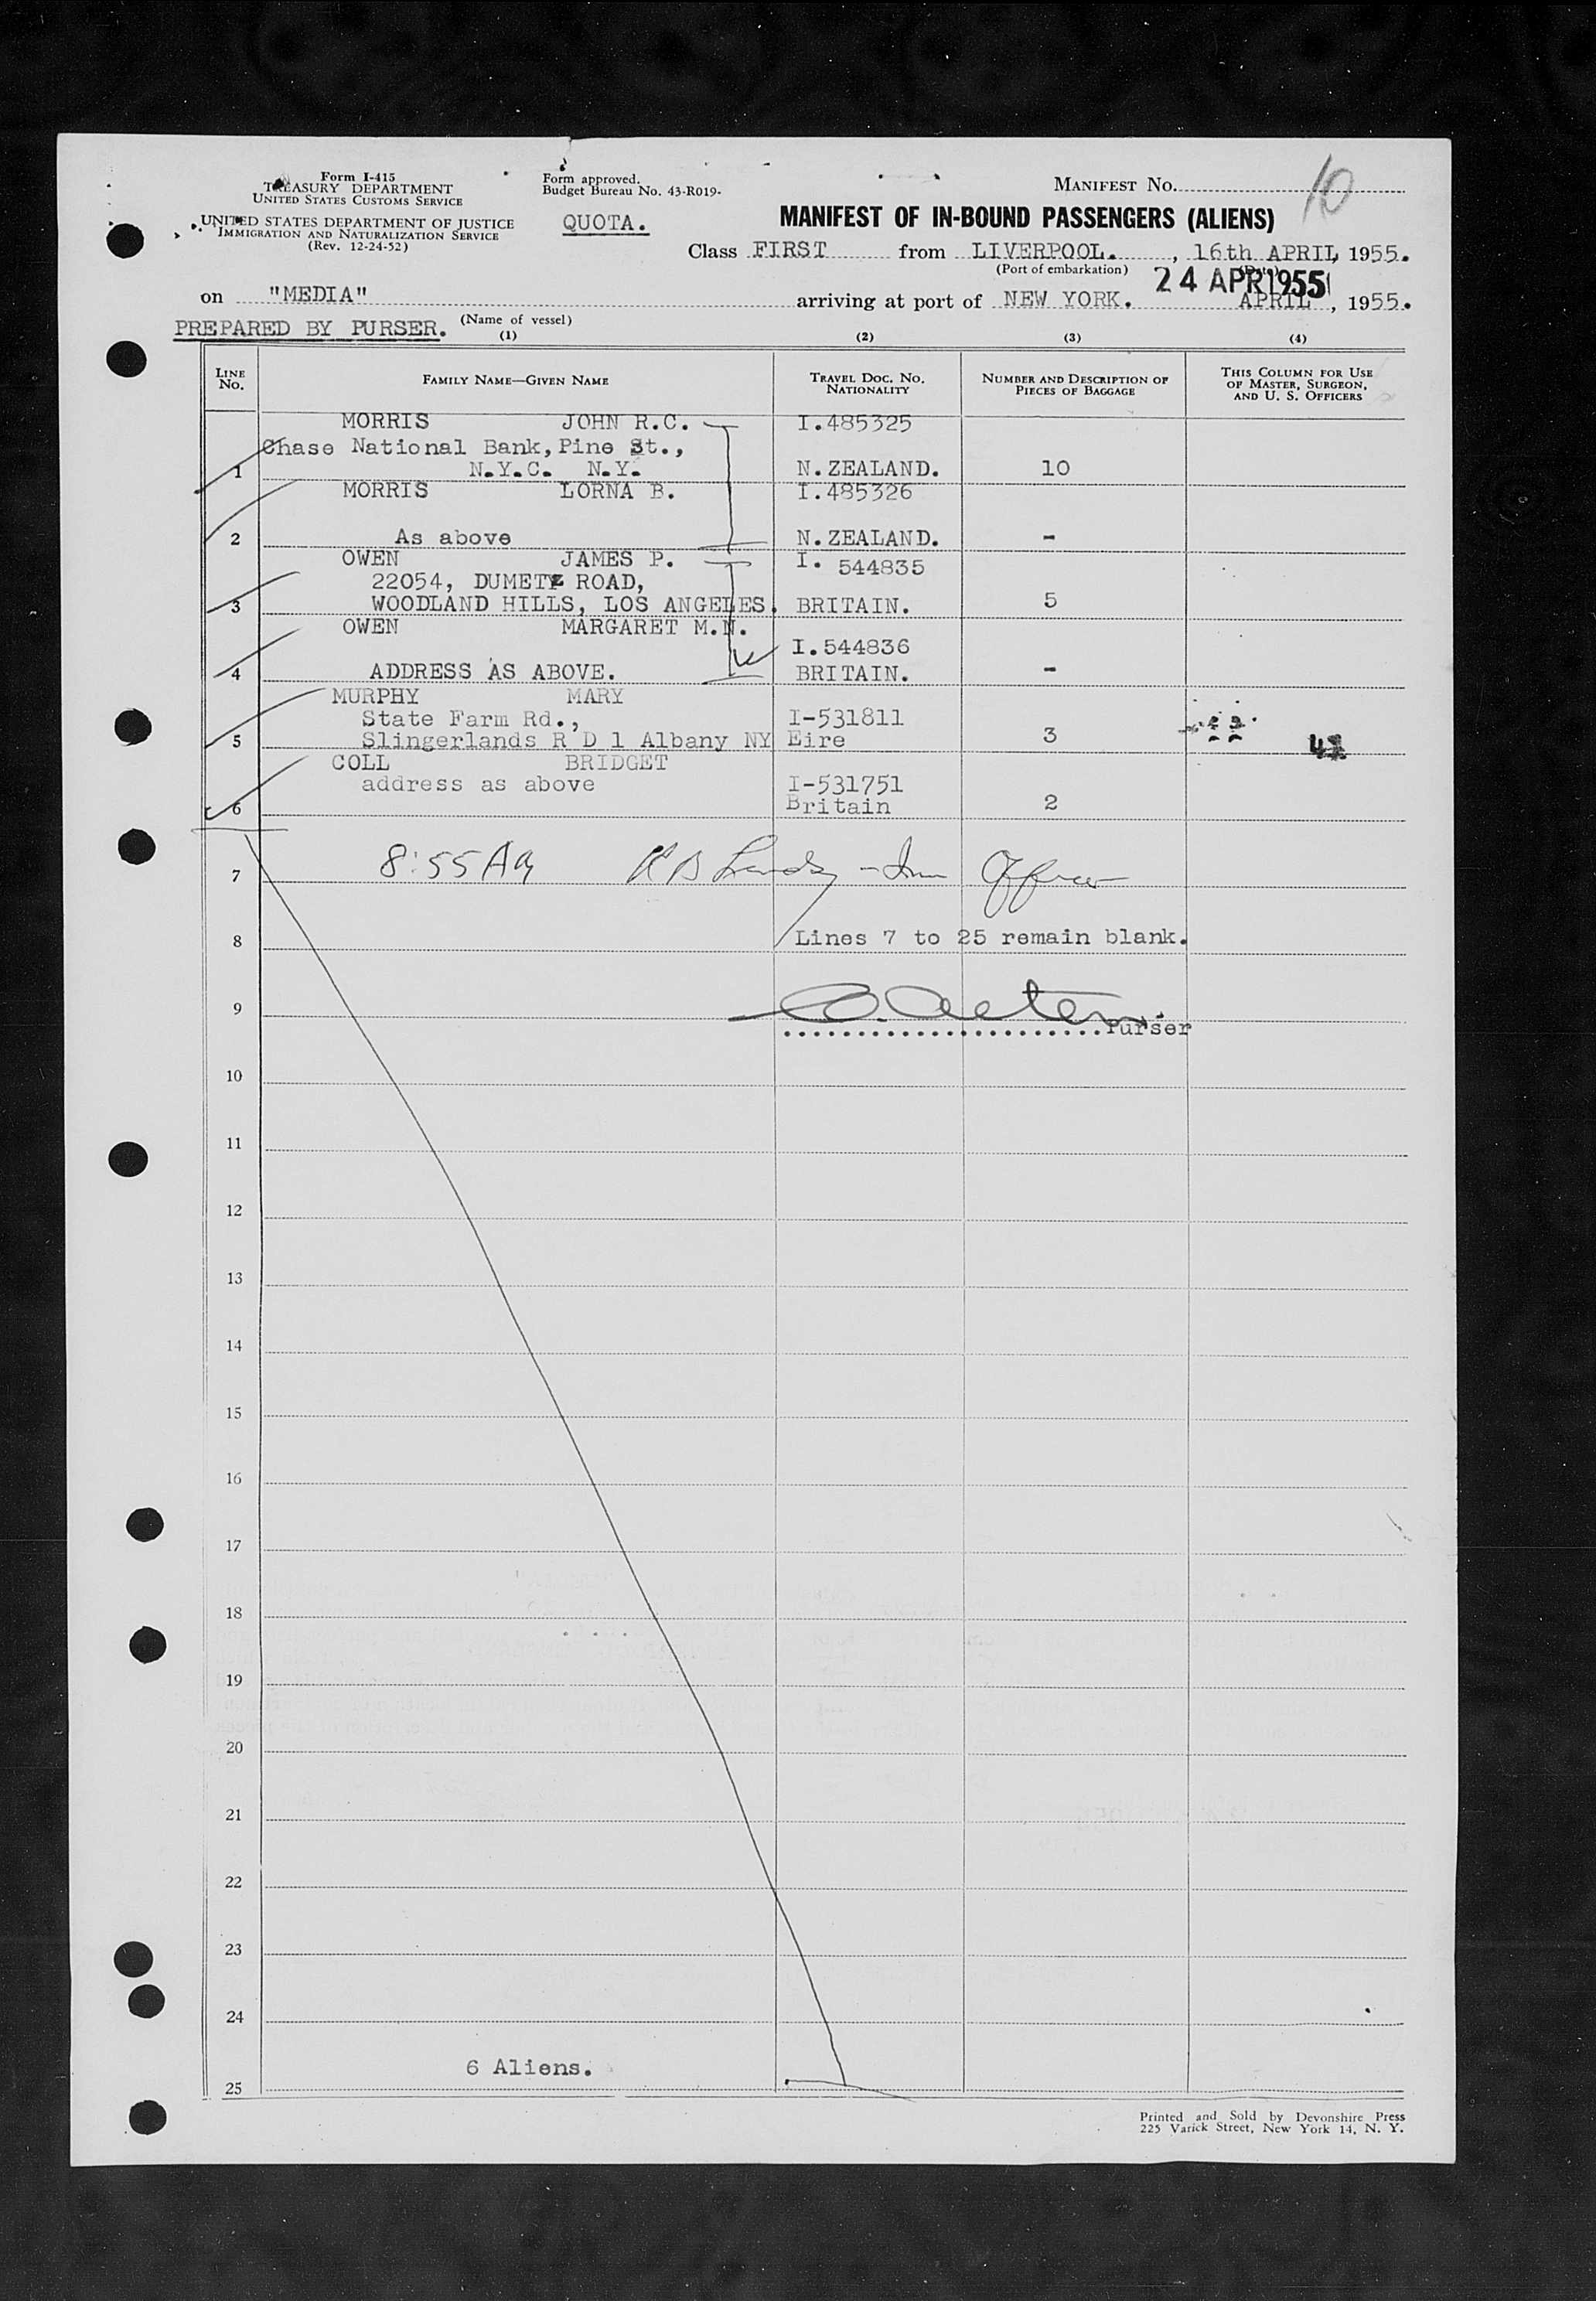 Form I-415
TREASURY DEPARTMENT
UNITED STATES CUSTOMS SERVICE
UNITED STATES DEPARTMENT OF JUSTICE
IMMIGRATION AND NATURALIZATION SERVICE
(Rev. 12-24-52)
Form approved.
Budget Bureau No. 43-R019-
QUOTA.
MANIFEST NO. 10
MANIFEST OF IN-BOUND PASSENGERS (ALIENS)
Class FIRST from LIVERPOOL. , 16th APRIL, 1955.
(Port of embarkation) (Date)
24 APR 1955
on "MEDIA" arriving at port of NEW YORK. APRIL , 1955.
(Name of vessel)
PREPARED BY PURSER.
(1) (2) (3) (4)
LINE No. FAMILY NAME—GIVEN NAME TRAVEL DOC. NO. NATIONALITY NUMBER AND DESCRIPTION OF PIECES OF BAGGAGE THIS COLUMN FOR USE OF MASTER, SURGEON, AND U. S. OFFICERS
MORRIS JOHN R.C. I.485325
Chase National Bank, Pine St.,
1 N.Y.C. N.Y. N.ZEALAND. 10
MORRIS LORNA B. I.485326
2 As above N.ZEALAND. -
OWEN JAMES P. I. 544835
22054, DUMETZ ROAD,
3 WOODLAND HILLS, LOS ANGELES. BRITAIN. 5
OWEN MARGARET M.N.
I.544836
4 ADDRESS AS ABOVE. BRITAIN. -
MURPHY MARY
State Farm Rd., I-531811
5 Slingerlands R D 1 Albany NY Eire 3
COLL BRIDGET
address as above I-531751
6 Britain 2
7 8:55 AM Officer
8 Lines 7 to 25 remain blank.
9 Purser
10
11
12
13
14
15
16
17
18
19
20
21
22
23
24
6 Aliens.
25
Printed and Sold by Devonshire Press
225 Varick Street, New York 14, N. Y.